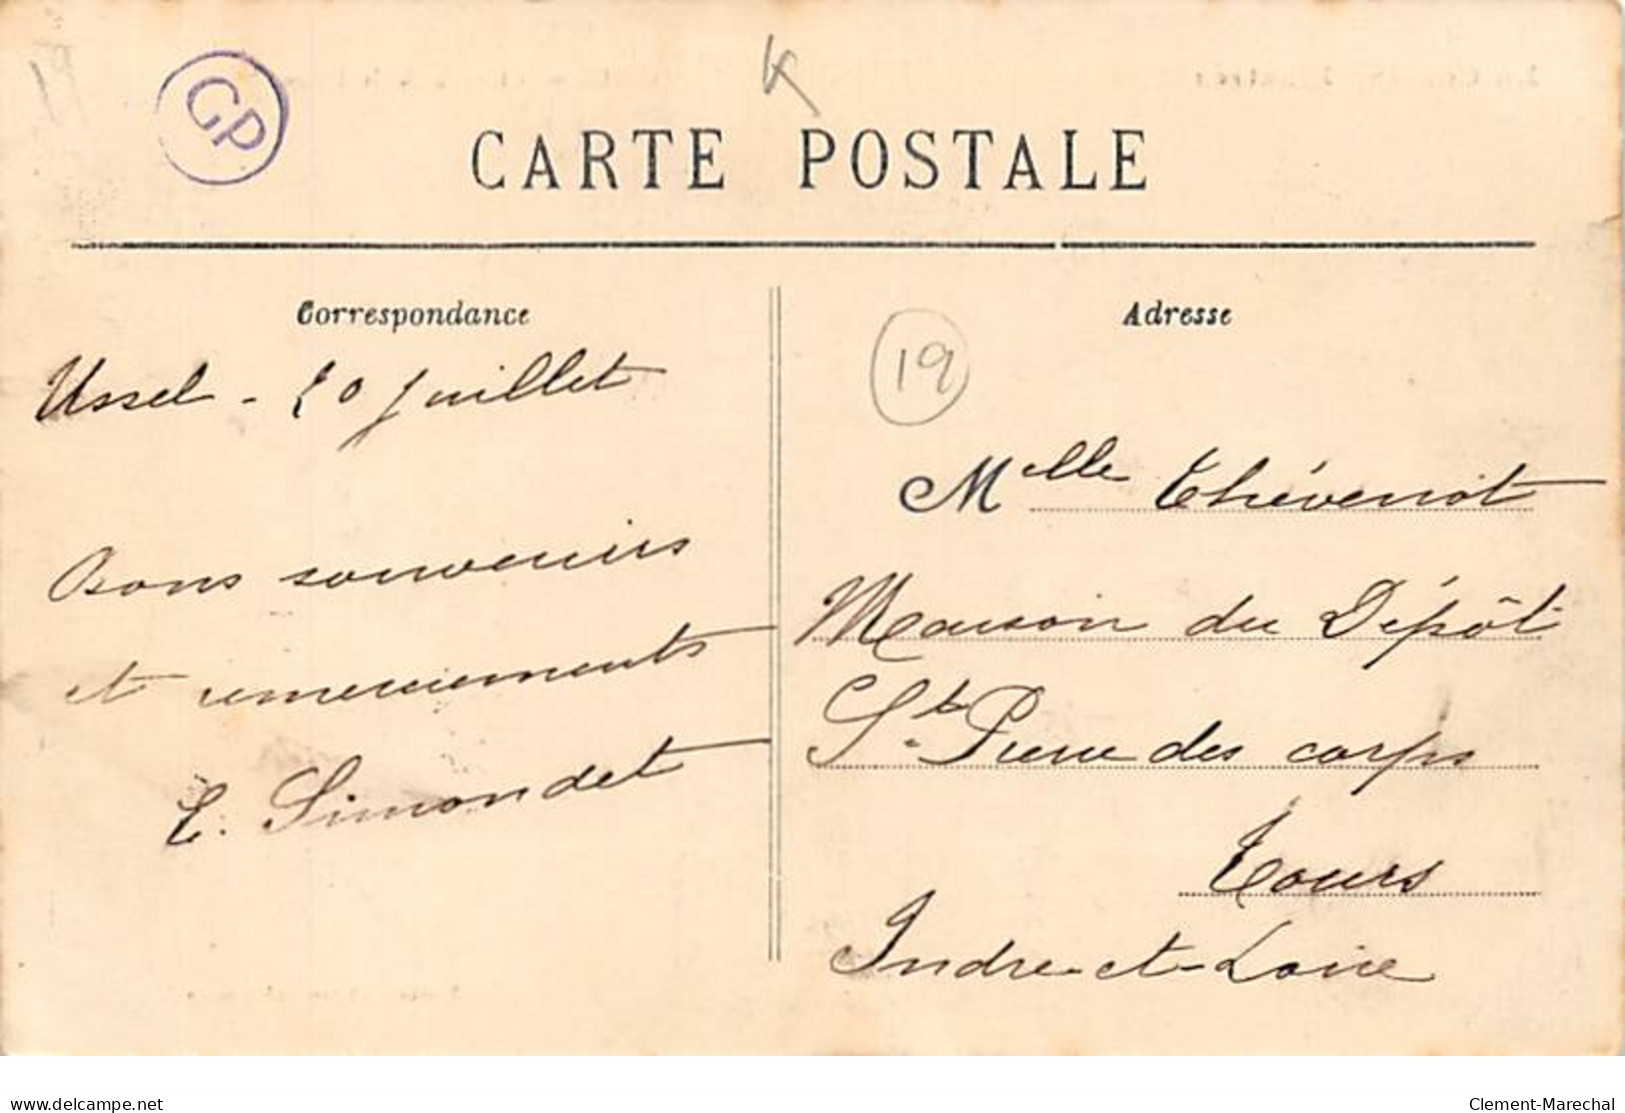 19
GP
CARTE POSTALE
Correspondance
Adresse
19
Ussel - 20 Juillet
Bons souvenirs
et remerciements
E. Simondet
Melle Thévenot
Maison du Dépôt
St. Pierre des corps
Tours
Indre-et-Loire
www.delcampe.net
Clement-Marechal